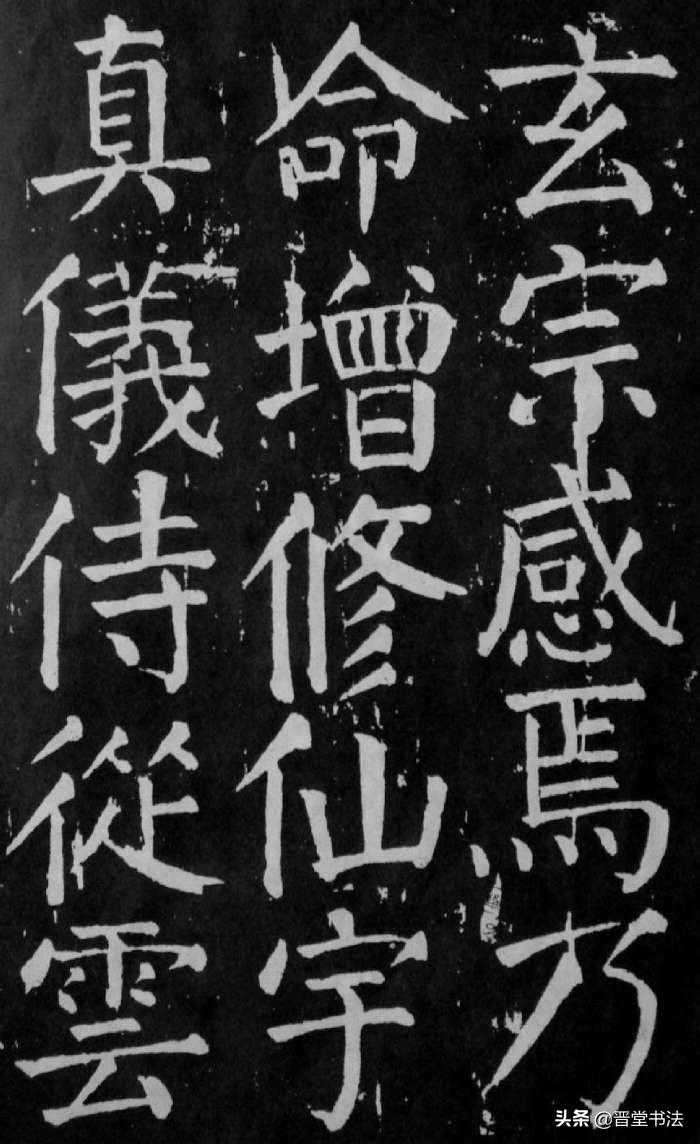 玄宗感焉乃
命增修仙宇
真儀侍從雲
头条 @晋堂书法